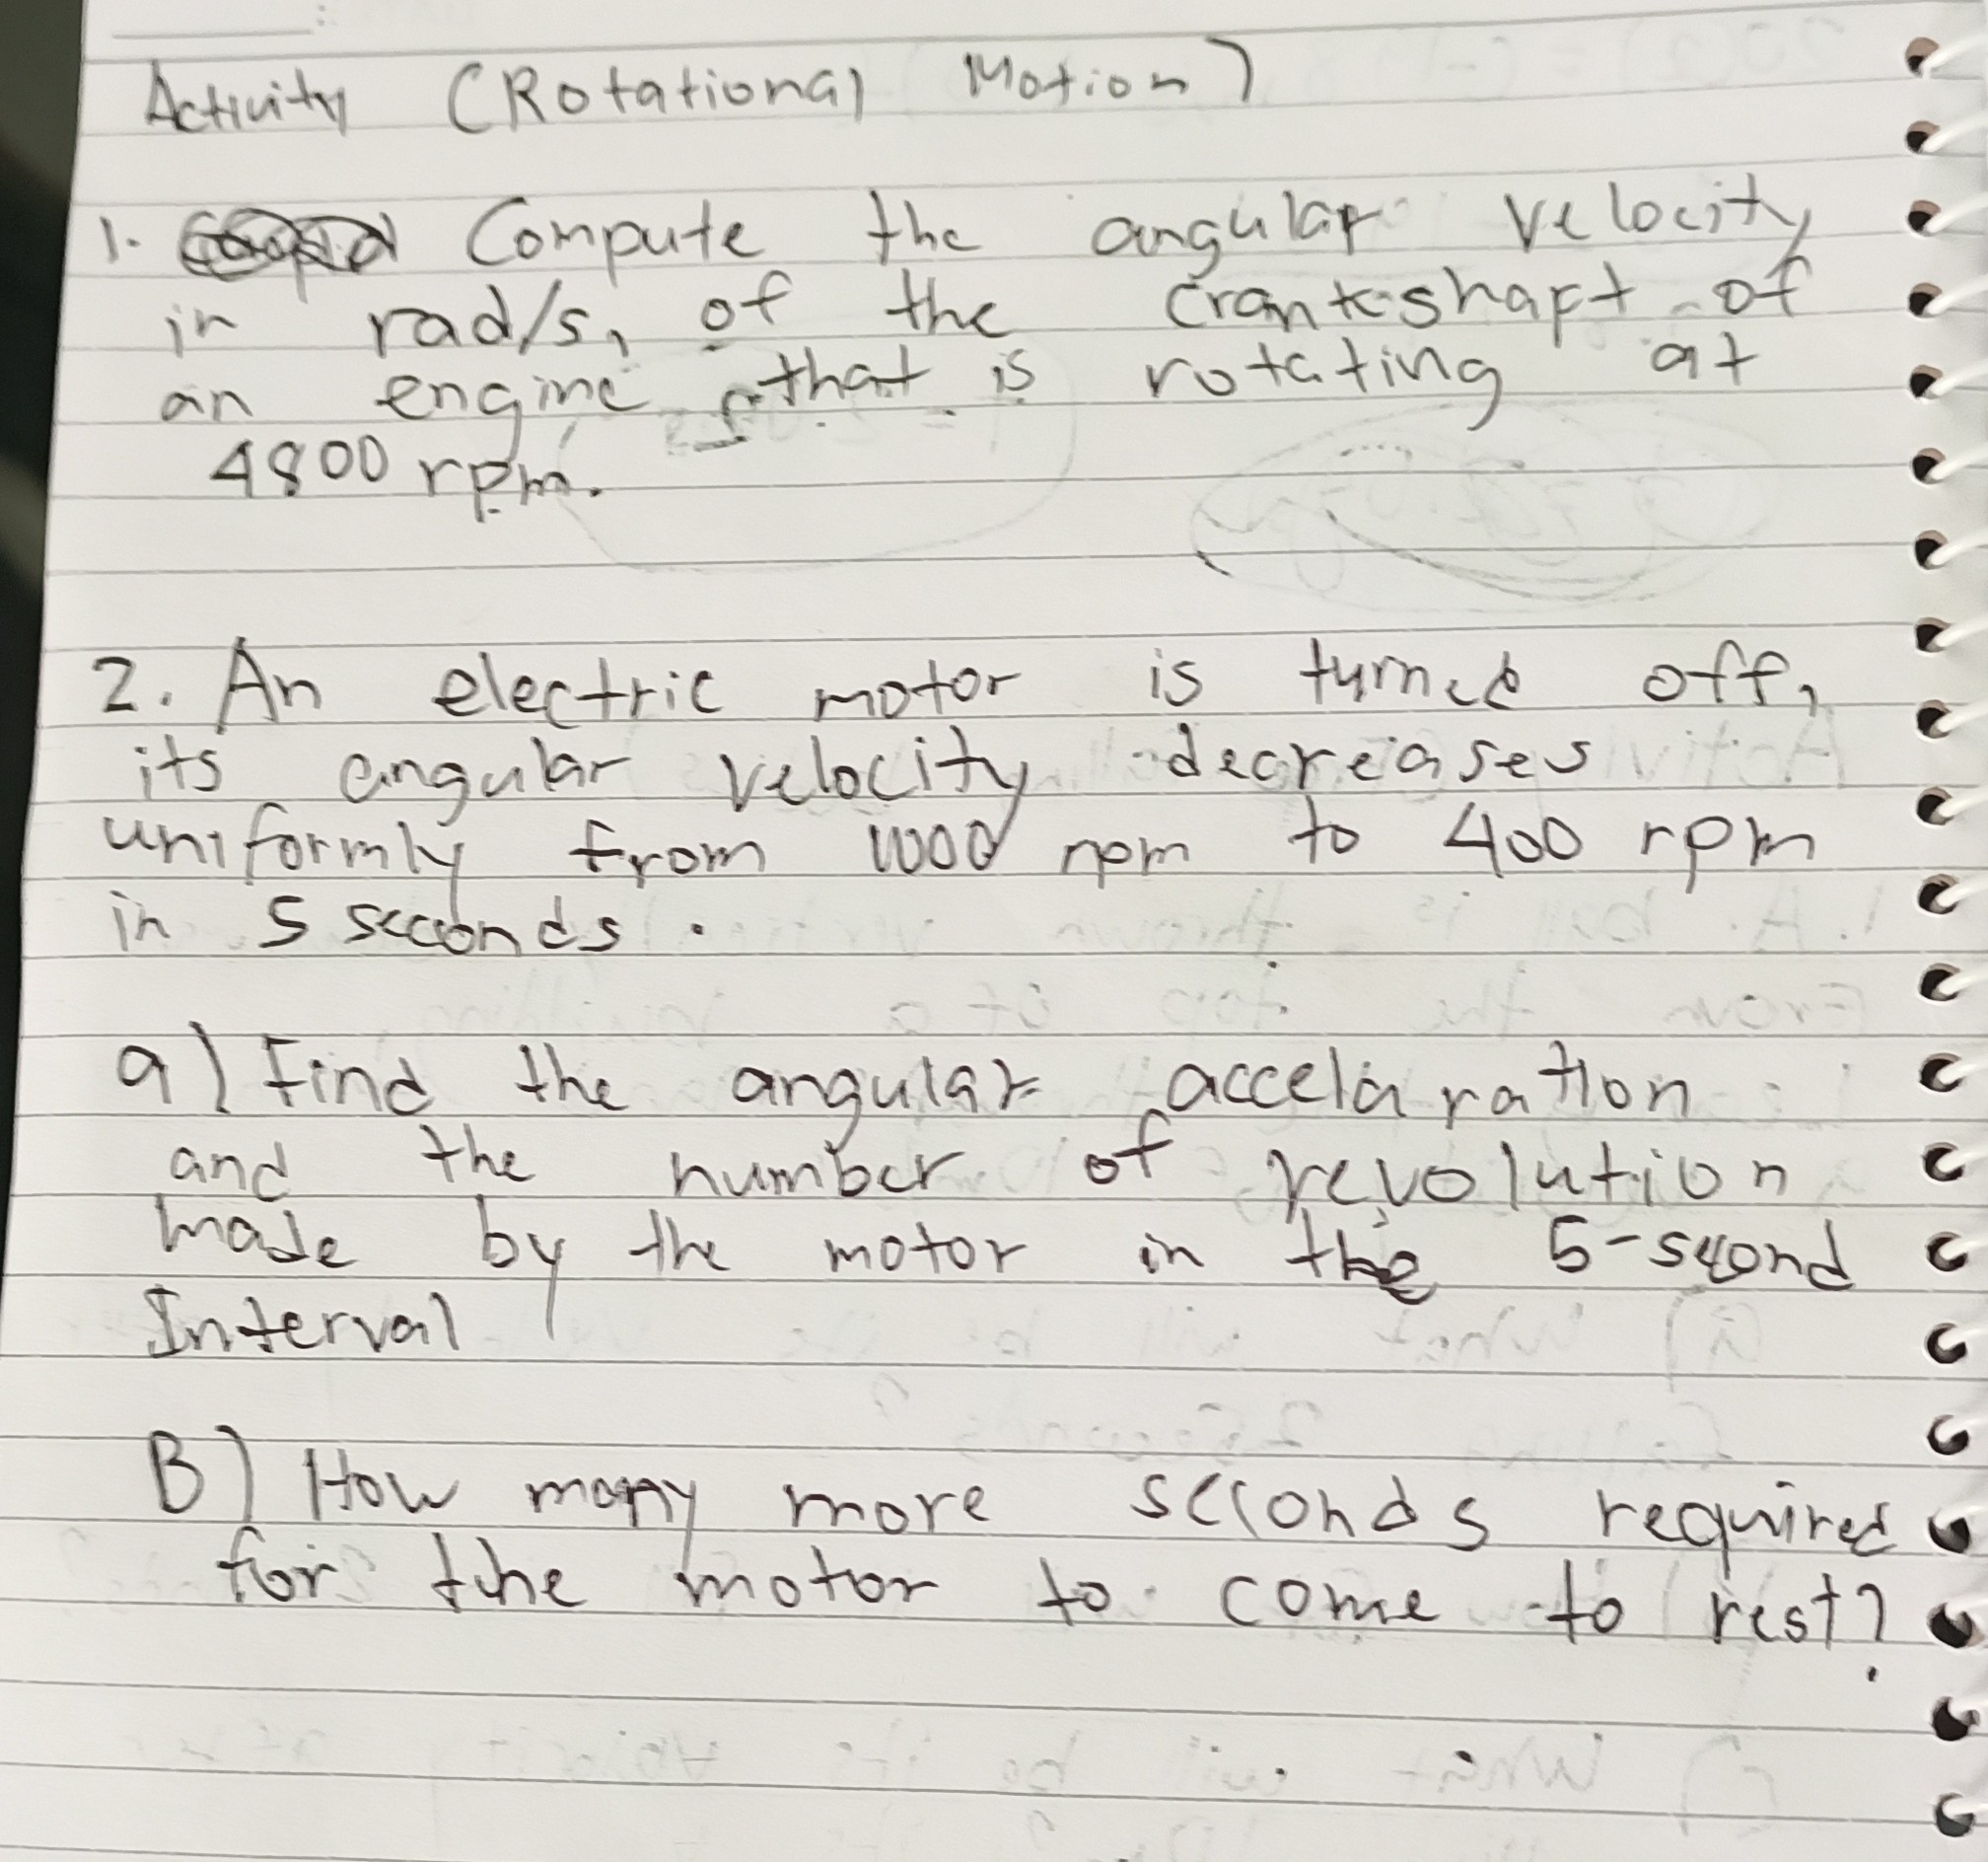 Activity (Rotational Motion)
1. Compute the angular velocity
in rad/s, of the crankshaft of
an engine that is rotating at
4800 rpm.
2. An electric motor is turned off,
its angular velocity decreases
uniformly from 1000 rpm to 400 rpm
in 5 seconds.
a) Find the angular accelaration
and the number of revolution
made by the motor in the 5-second
Interval
B) How many more seconds required
for the motor to come to rest?